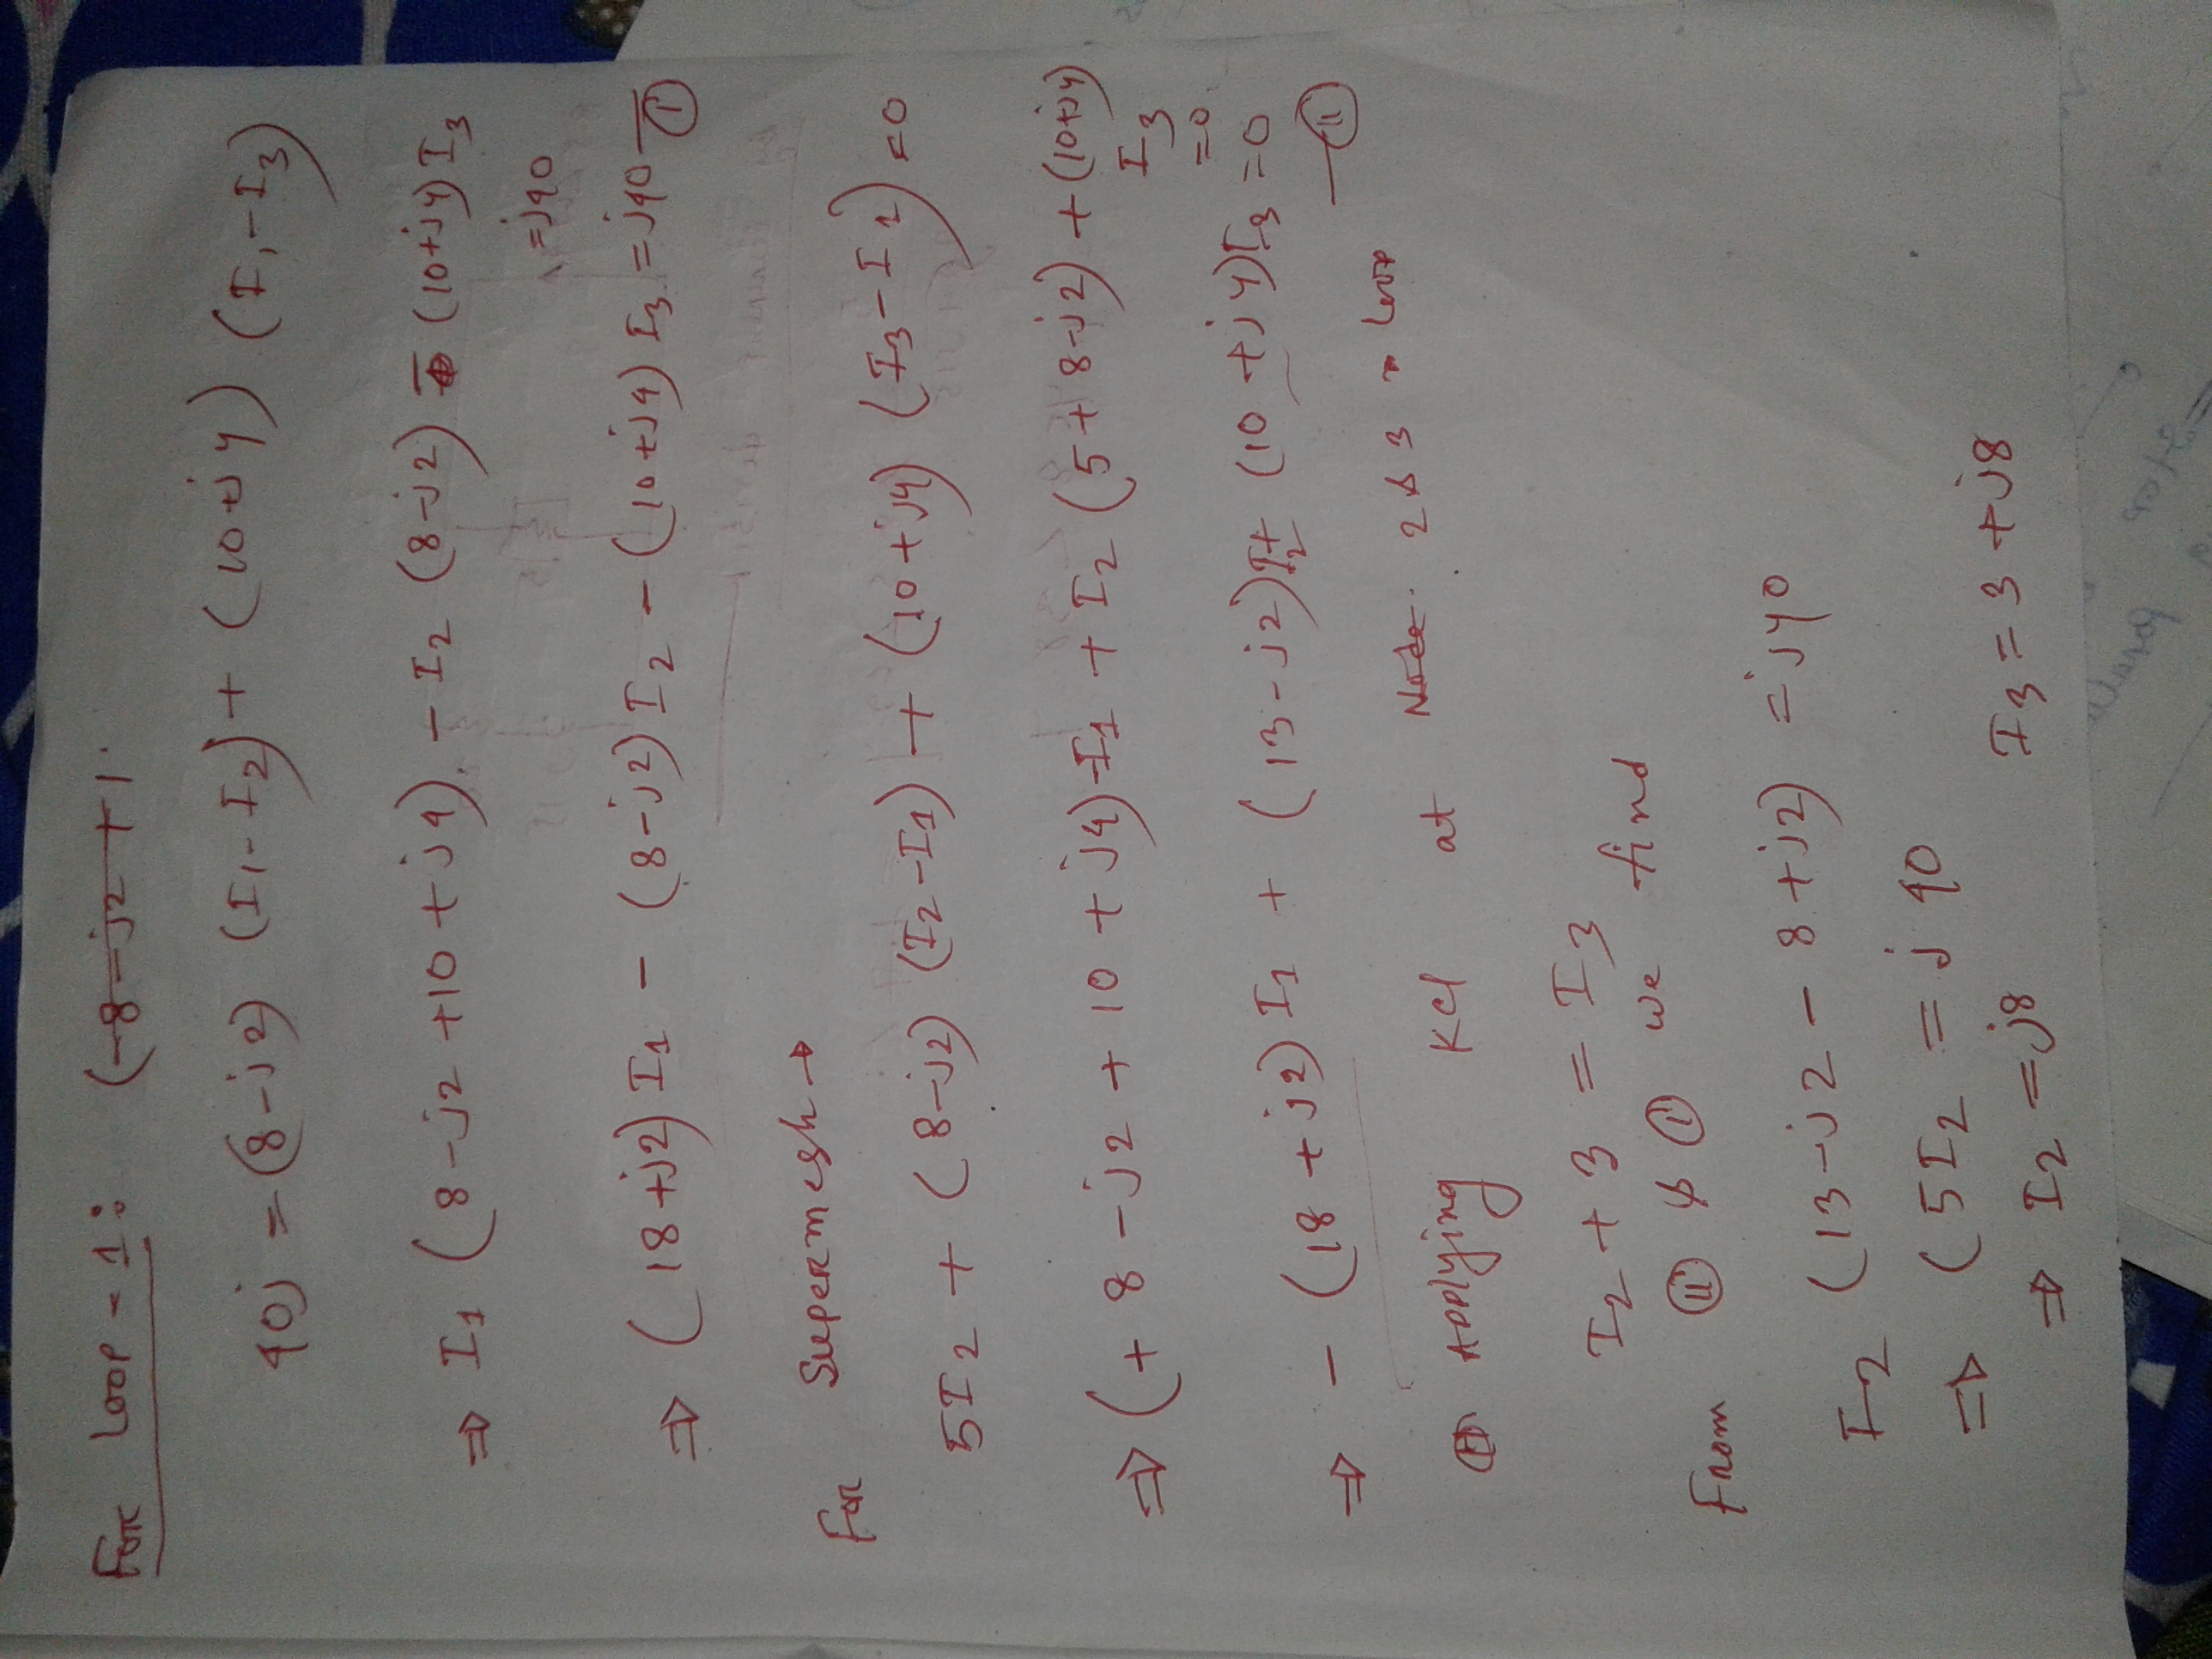 For Loop - 1: (-8-j2 + 1
40j = (8-j2) (I1-I2) + (10+j4) (I1-I3)
⇒ I1 (8-j2+10+j4) - I2 (8-j2) - (10+j4) I3
=j40
⇒ (18+j2) I1 - (8-j2) I2 - (10+j4) I3 = j40 — (I)
For Supermesh →
5I2 + (8-j2) (I2-I1) + (10+j4) (I3-I1) =0
⇒ (+8-j2+10+j4)-I1 + I2 (5+8-j2) + (10+j4)
I3
=0
⇒ - (18+j2) I1 + (13-j2)I2+ (10+j4)I3 =0
— (II)
Applying KCl at Node 2 & 3 loop
I2 + 3 = I3
From (II) & (I) we find
I2 (13-j2-8+j2) = j40
⇒ (5I2 = j 40
⇒ I2 = j8 I3 = 3 + j8